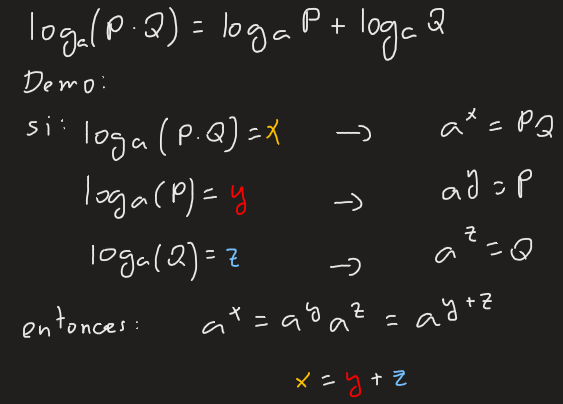 logₐ(P·Q) = logₐ P + logₐ Q
Demo:
si: logₐ(P.Q) = x → aˣ = PQ
logₐ(P) = y → aʸ = P
logₐ(Q) = z → aᶻ = Q
entonces: aˣ = aʸ aᶻ = aʸ⁺ᶻ
x = y + z